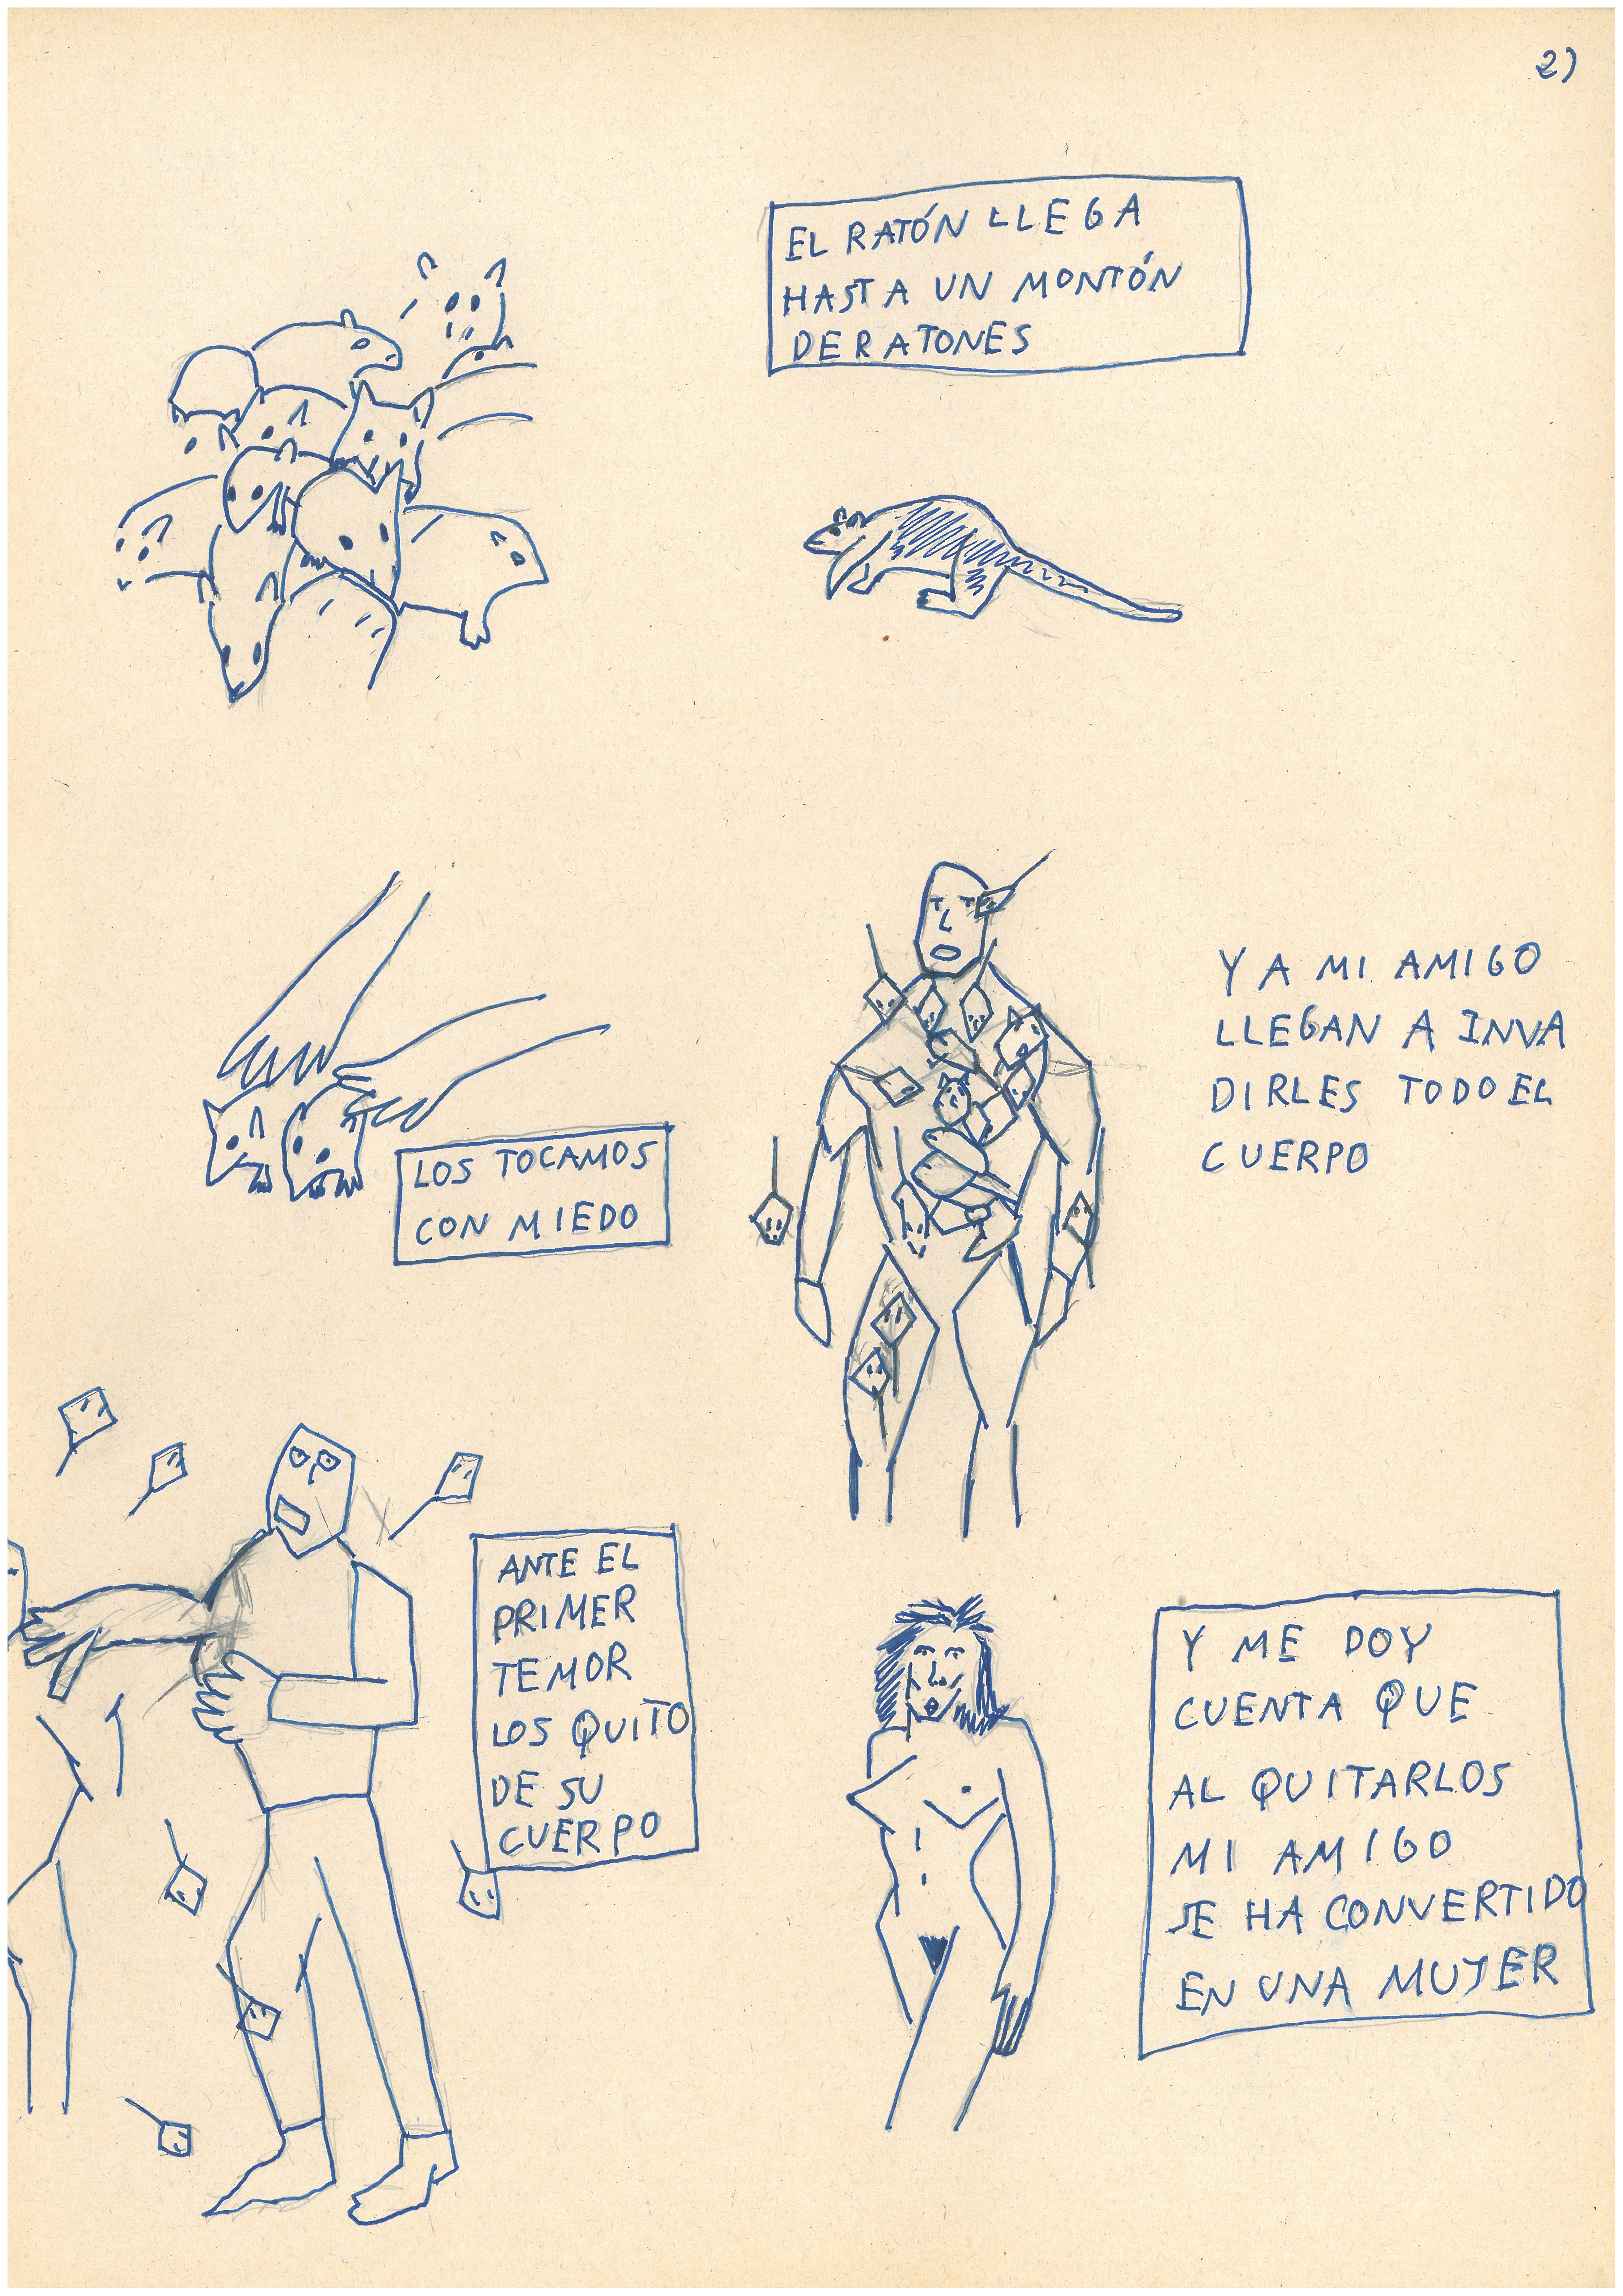 2)
EL RATÓN LLEGA
HASTA UN MONTÓN
DE RATONES
LOS TOCAMOS
CON MIEDO
Y A MI AMIGO
LLEGAN A INVA
DIRLES TODO EL
CUERPO
ANTE EL
PRIMER
TEMOR
LOS QUITO
DE SU
CUERPO
Y ME DOY
CUENTA QUE
AL QUITARLOS
MI AMIGO
SE HA CONVERTIDO
EN UNA MUJER